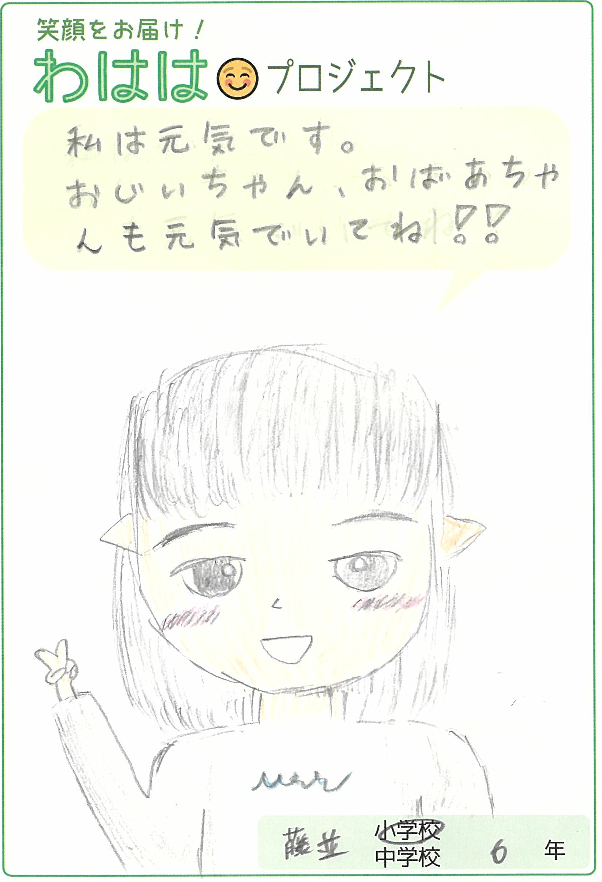 笑顔をお届け！
わはは プロジェクト
私は元気です。
おじいちゃん、おばあちゃ
んも元気でいてね!!
藤並 小学校
中学校 6 年